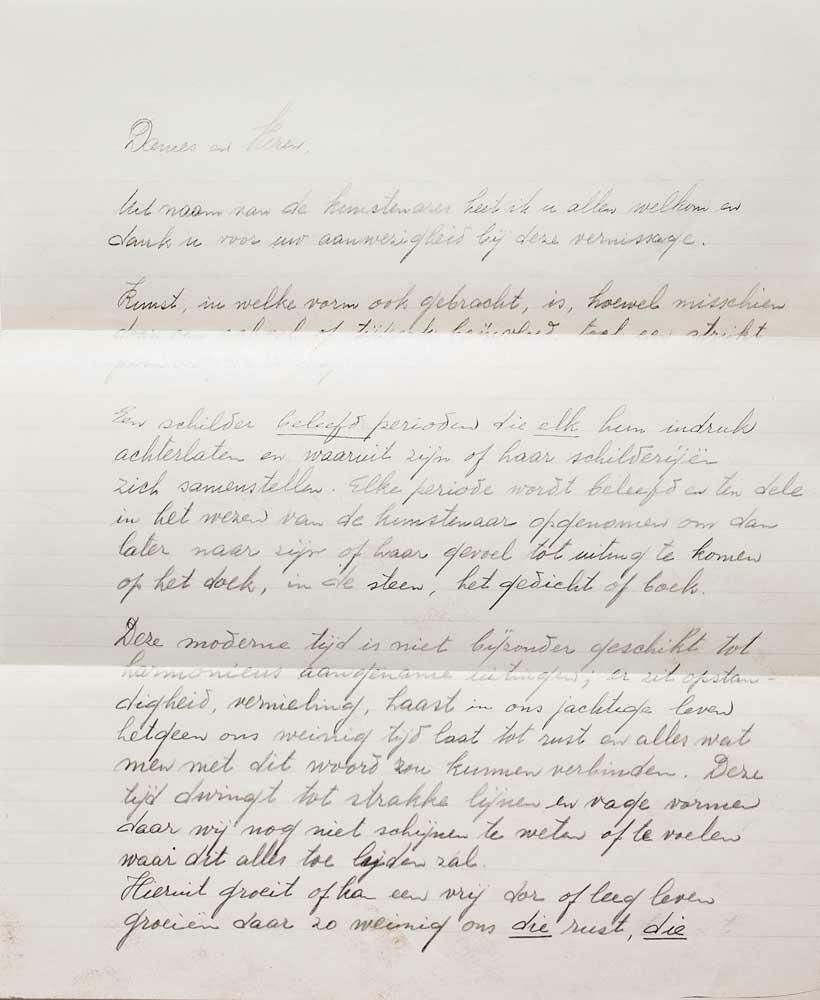 Dames en Heren,
Uit naam van de kunstenares heet ik u allen welkom en
dank u voor uw aanwezigheid bij deze vernissage.
Kunst, in welke vorm ook gebracht, is, hoewel misschien
door een school of tijdperk beïnvloed, toch een strikt
Een schilder beleefd perioden die elk hun indruk
achterlaten en waaruit zijn of haar schilderijen
zich samenstellen. Elke periode wordt beleefd en ten dele
in het wezen van de kunstenaar opgenomen om dan
later naar zijn of haar gevoel tot uiting te komen
op het doek, in de steen, het gedicht of boek.
Deze moderne tijd is niet bijzonder geschikt tot
harmonieus aangename uitingen; er zit opstan-
digheid, vernieling, haast in ons jachtige leven
hetgeen ons weinig tijd laat tot rust en alles wat
men met dit woord zou kunnen verbinden. Deze
tijd dwingt tot strakke lijnen en vage vormen
daar wij nog niet schijnen te weten of te voelen
waar dit alles toe leiden zal.
Hieruit groeit of kan een vrij dor of leeg leven
groeiën daar zo weinig ons die rust, die